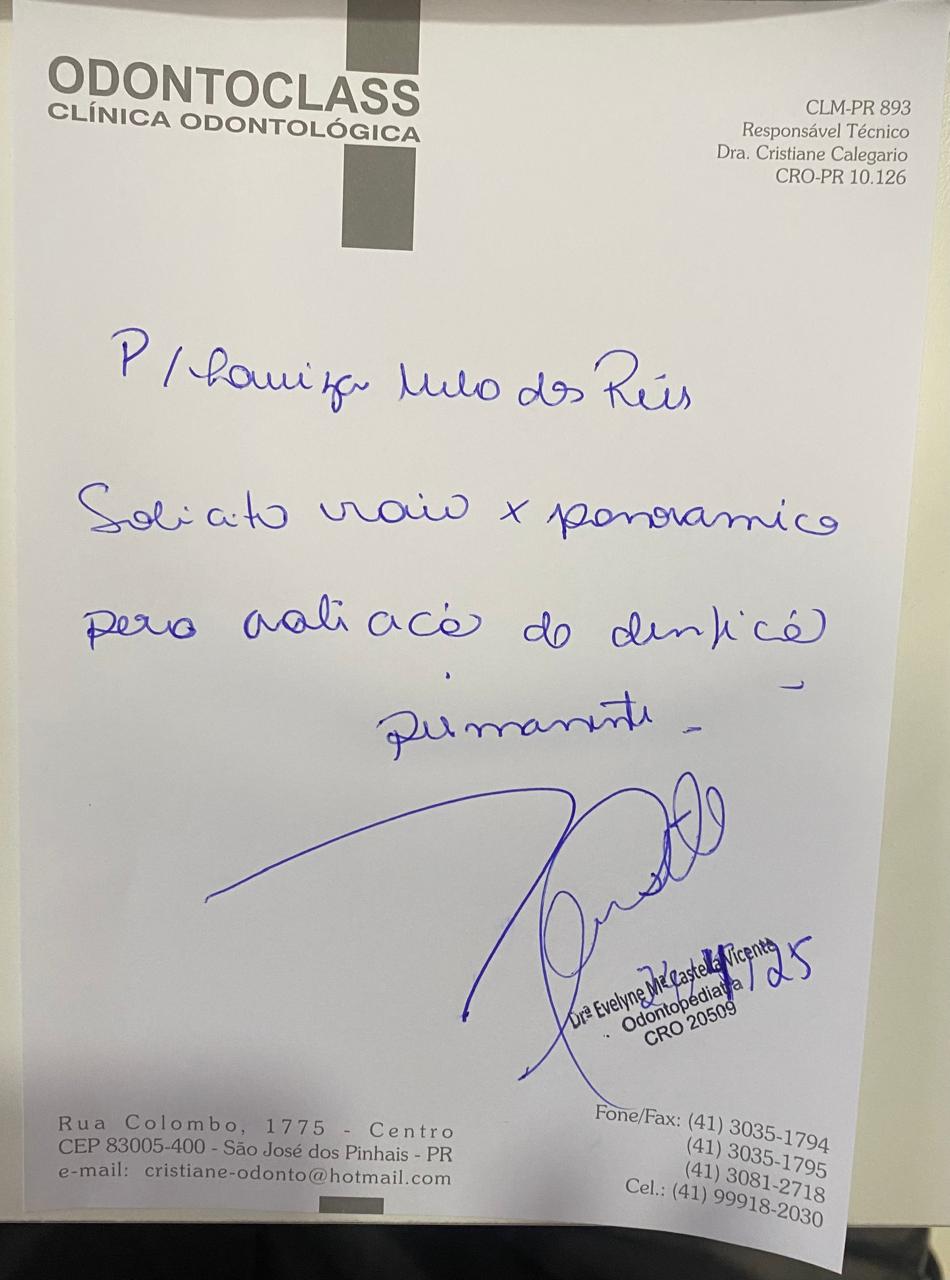 ODONTOCLASS
CLÍNICA ODONTOLÓGICA
CLM-PR 893
Responsável Técnico
Dra. Cristiane Calegario
CRO-PR 10.126
P/ Louiza Melo dos Reis
Solicito raio x panoramico
para avaliação da dentição
permanente
Drª Evelyne Mª Castella Vicente
Odontopediatra
CRO 20509
/25
Rua Colombo, 1775 - Centro
CEP 83005-400 - São José dos Pinhais - PR
e-mail: cristiane-odonto@hotmail.com
Fone/Fax: (41) 3035-1794
(41) 3035-1795
(41) 3081-2718
Cel.: (41) 99918-2030